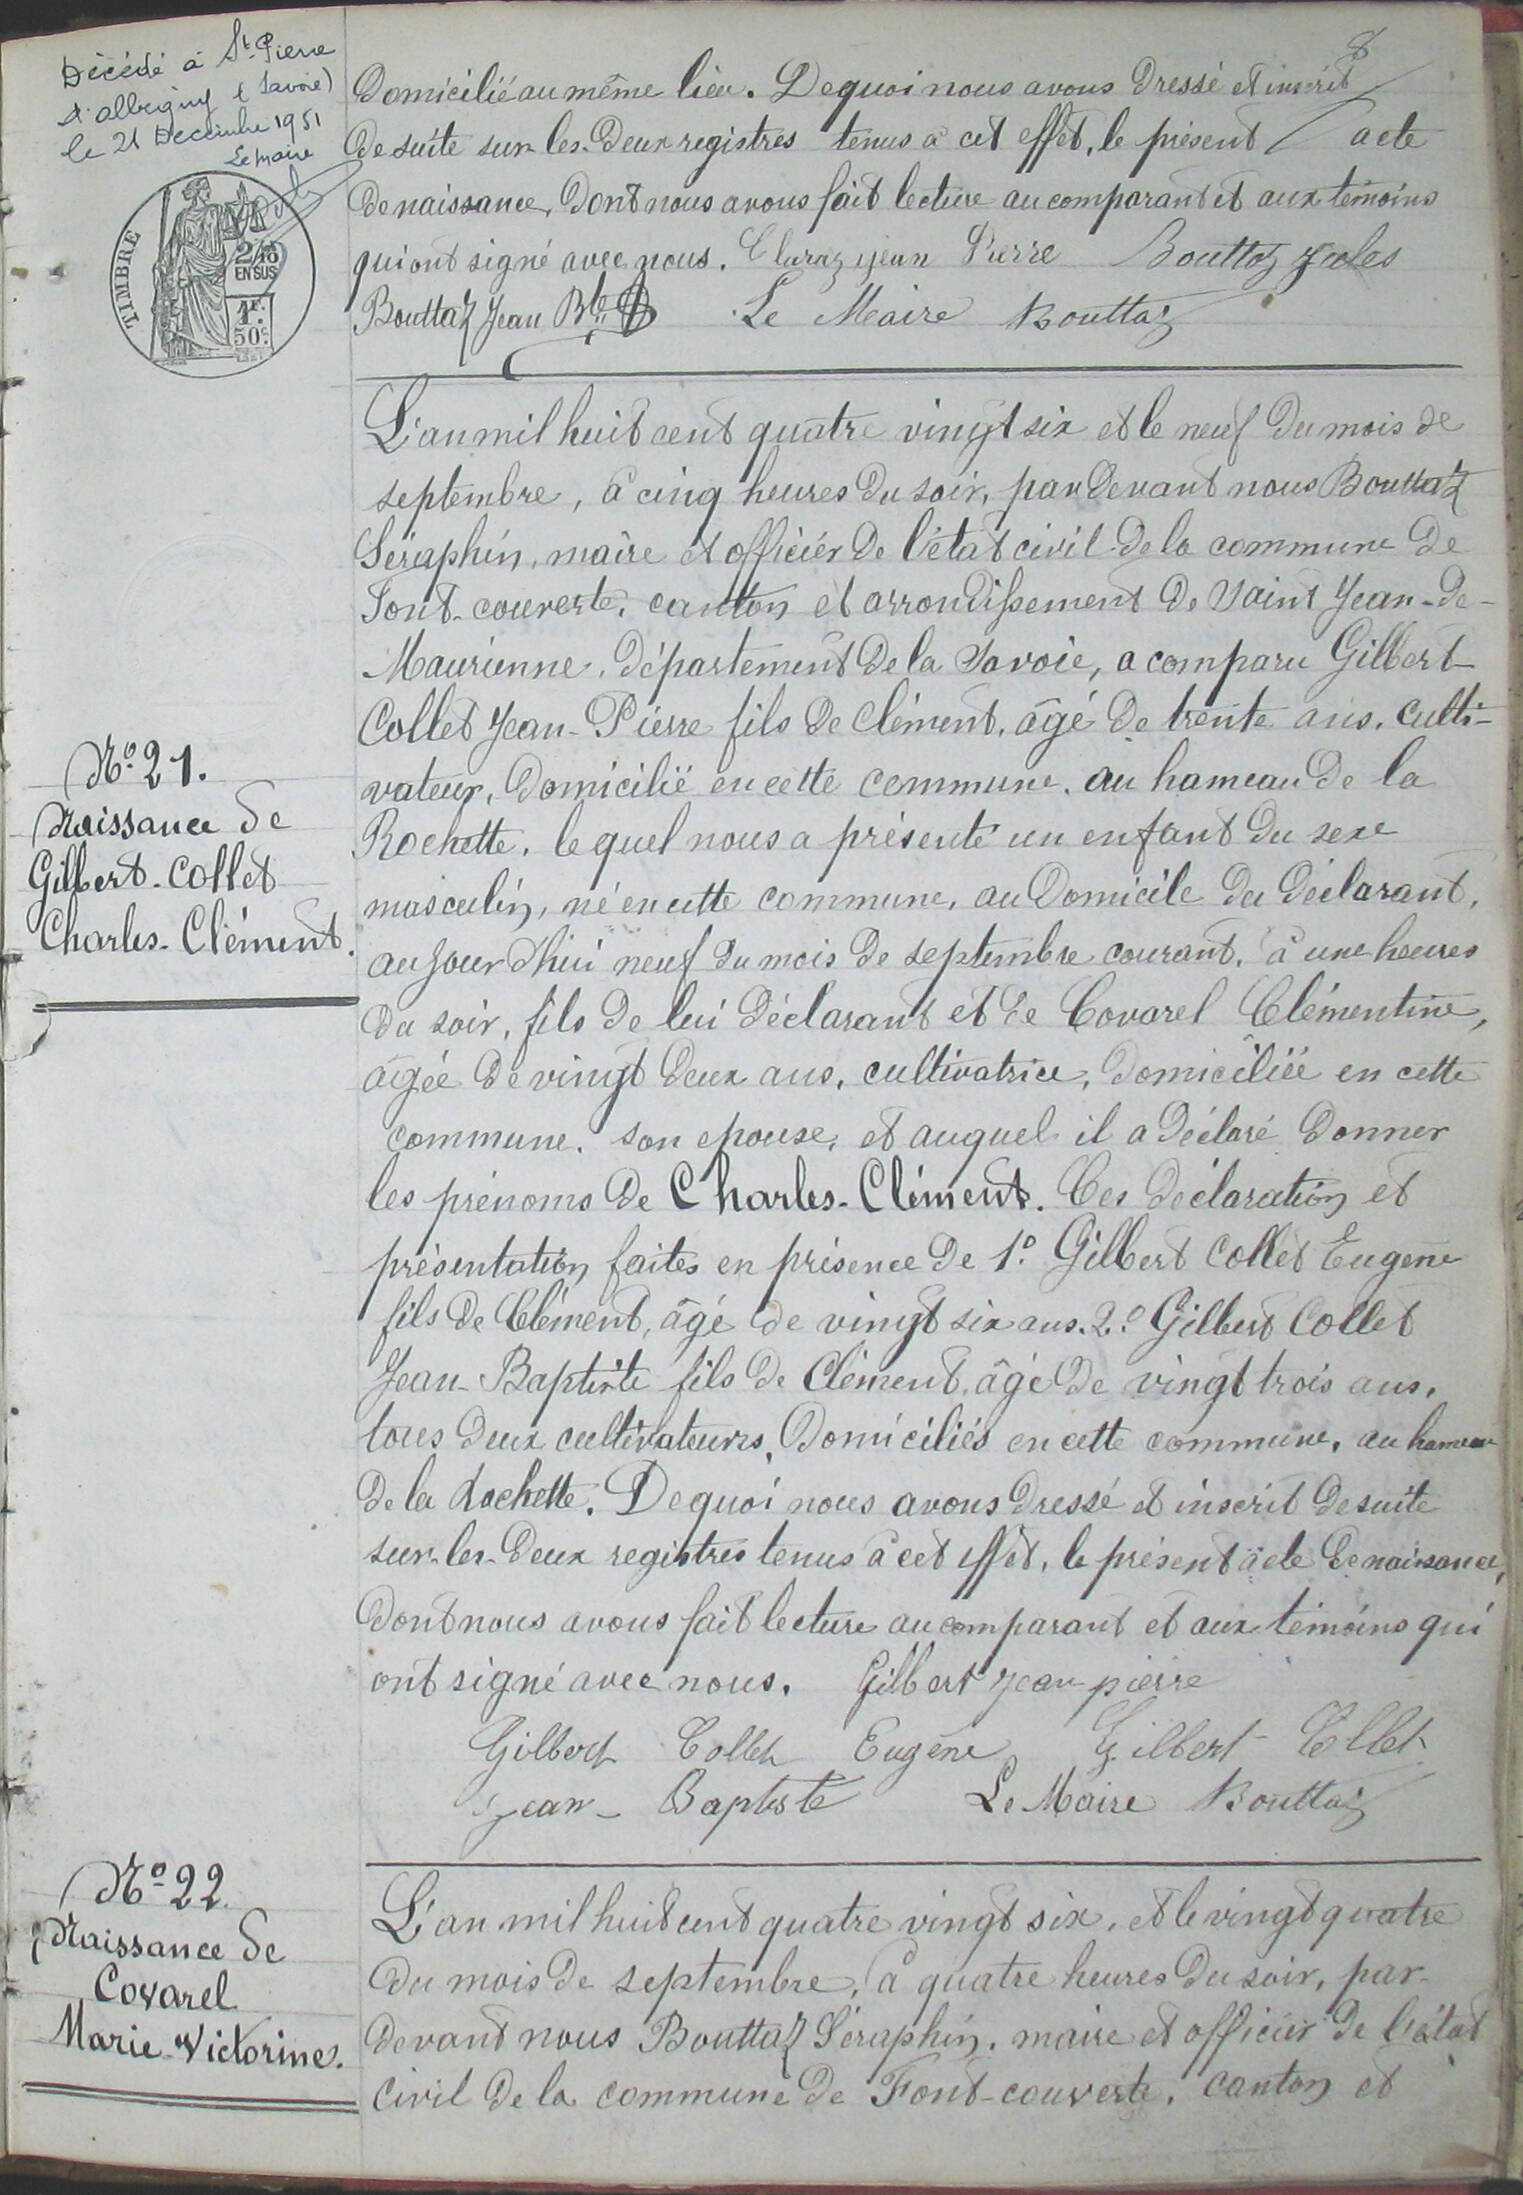 8
Décédé à St Pierre
d'albigny (Savoie)
le 21 Decembre 1951
Le maire
TIMBRE
2/10
EN SUS
1F.
50c.
Domicilié au même lieu. De quoi nous avons dressé et inscrit
de suite sur les deux registres tenus à cet effet, le présent acte
de naissance, dont nous avons fait lecture au comparant et aux témoins
qui ont signé avec nous. Claraz jean Pierre Bouttaz Jules
Bouttaz Jean Bte Le Maire Bouttaz
L'an mil huit cent quatre vingt six et le neuf du mois de
septembre, à cinq heures du soir, par devant nous Bouttaz
Séraphin, maire et officiér de l'état civil de la commune de
Font-couverte, canton et arrondissement de Saint Jean-de-
Maurienne, département de la Savoie, a comparu Gilbert
Collet Jean-Pierre fils de Clément, âgé de trente ans, culti-
vateur, domicilié en cette commune, au hameau de la
Rochette, le quel nous a présenté un enfant du sexe
masculin, né en cette commune, au domicile du déclarant,
aujourd'hui neuf du mois de septembre courant, à une heures
du soir, fils de lui déclarant et de Covarel Clémentine,
âgée de vingt deux ans, cultivatrice, domiciliée en cette
commune, son epouse, et auquel il a déclaré donner
les prénoms de Charles-Clément. Ces déclaration et
présentation faites en présence de 1° Gilbert Collet Eugène
fils de Clément, âgé de vingt six ans. 2° Gilbert Collet
Jean-Baptiste fils de Clément, âgé de vingt trois ans,
tous deux cultivateurs, domiciliés en cette commune, au hameau
de la Rochette. De quoi nous avons dressé et inscrit de suite
sur les deux registres tenus à cet effet, le présent acte de naissance,
dont nous avons fait lecture au comparant et aux témoins qui
ont signé avec nous. Gilbert Jean pierre
Gilbert Collet Eugène Gilbert Collet
Jean-Baptiste Le Maire Bouttaz
N° 21.
Naissance de
Gilbert-Collet
Charles-Clément.
N° 22
Naissance de
Covarel
Marie-Victorine.
L'an mil huit cent quatre vingt six, et le vingt quatre
du mois de septembre, à quatre heures du soir, par-
devant nous Bouttaz Séraphin, maire et officier de l'état
civil de la commune de Font-couverte, canton et